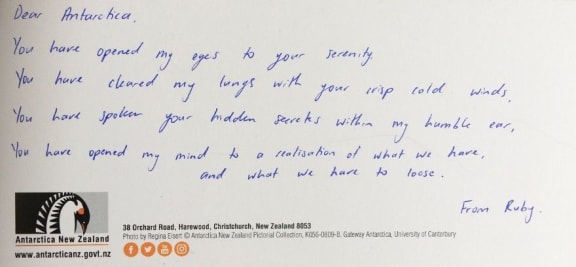 Dear Antarctica,
You have opened my eyes to your serenity.
You have cleared my lungs with your crisp cold winds.
You have spoken your hidden secrets within my humble ear,
You have opened my mind to a realisation of what we have,
and what we have to loose.
From Ruby.
Antarctica New Zealand
www.antarcticanz.govt.nz
38 Orchard Road, Harewood, Christchurch, New Zealand 8053
Photo by Regina Eisert © Antarctica New Zealand Pictorial Collection, K056-0809-B, Gateway Antarctica, University of Canterbury